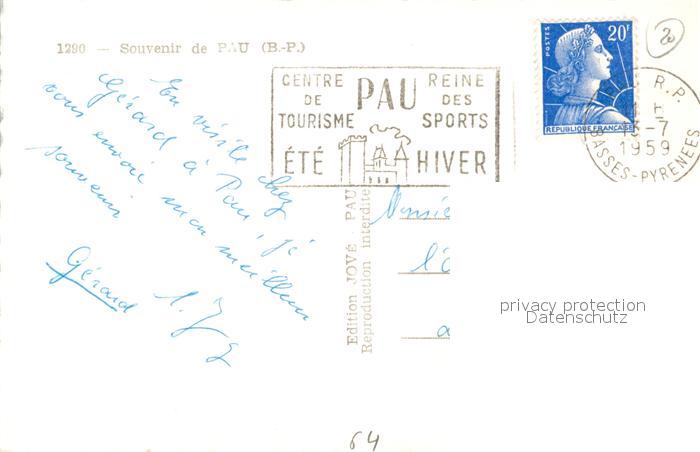 1290 — Souvenir de PAU (B.-P.)
CENTRE DE TOURISME
PAU
REINE DES SPORTS
ÉTÉ HIVER
POSTES
20F
REPUBLIQUE FRANÇAISE
R.P.
13-7
1959
BASSES-PYRENEES
20
En visite chez
Gérard à Pau, je
vous envoie mon meilleur
souvenir
Gérard
Edition JOVÉ - PAU
Reproduction interdite
l'é
a
privacy protection
Datenschutz
64